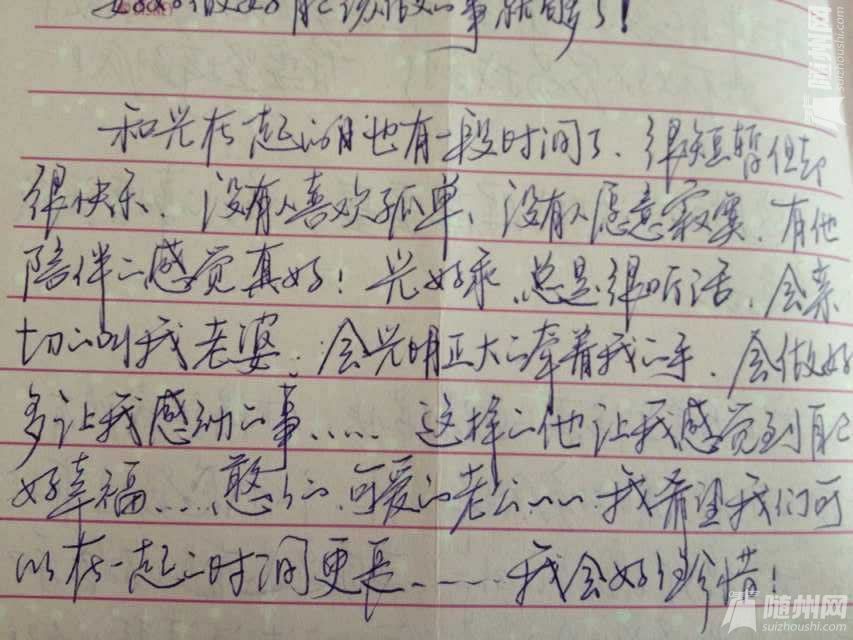 好好做好自己该做的事就够了!
随州网
suizhoushi.com
和光在一起的日也有一段时间了、很短暂但却
很快乐、没有人喜欢孤单、没有人愿意寂寞、有他
陪伴的感觉真好!光好乖、总是很听话、会亲
切的叫我老婆、会光明正大的牵着我的手、会做好
多让我感动的事、、、、、这样的他让我感觉到自己
好幸福、、、、憨憨的、可爱的老公、、、、我希望我们可
以在一起的时间更长、、、、、我会好好珍惜!
随州网
suizhoushi.com